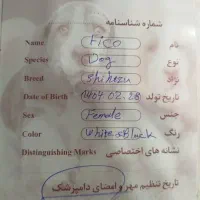 شماره شناسنامه
Name Fico نام
Species Dog نوع
Breed Shihtzu نژاد
Date of Birth 1404.02.28 تاریخ تولد
Sex Female جنس
Color White & Black رنگ
Distinguishing Marks نشانه های اختصاصی
تاریخ تنظیم مهر و امضای دامپزشک